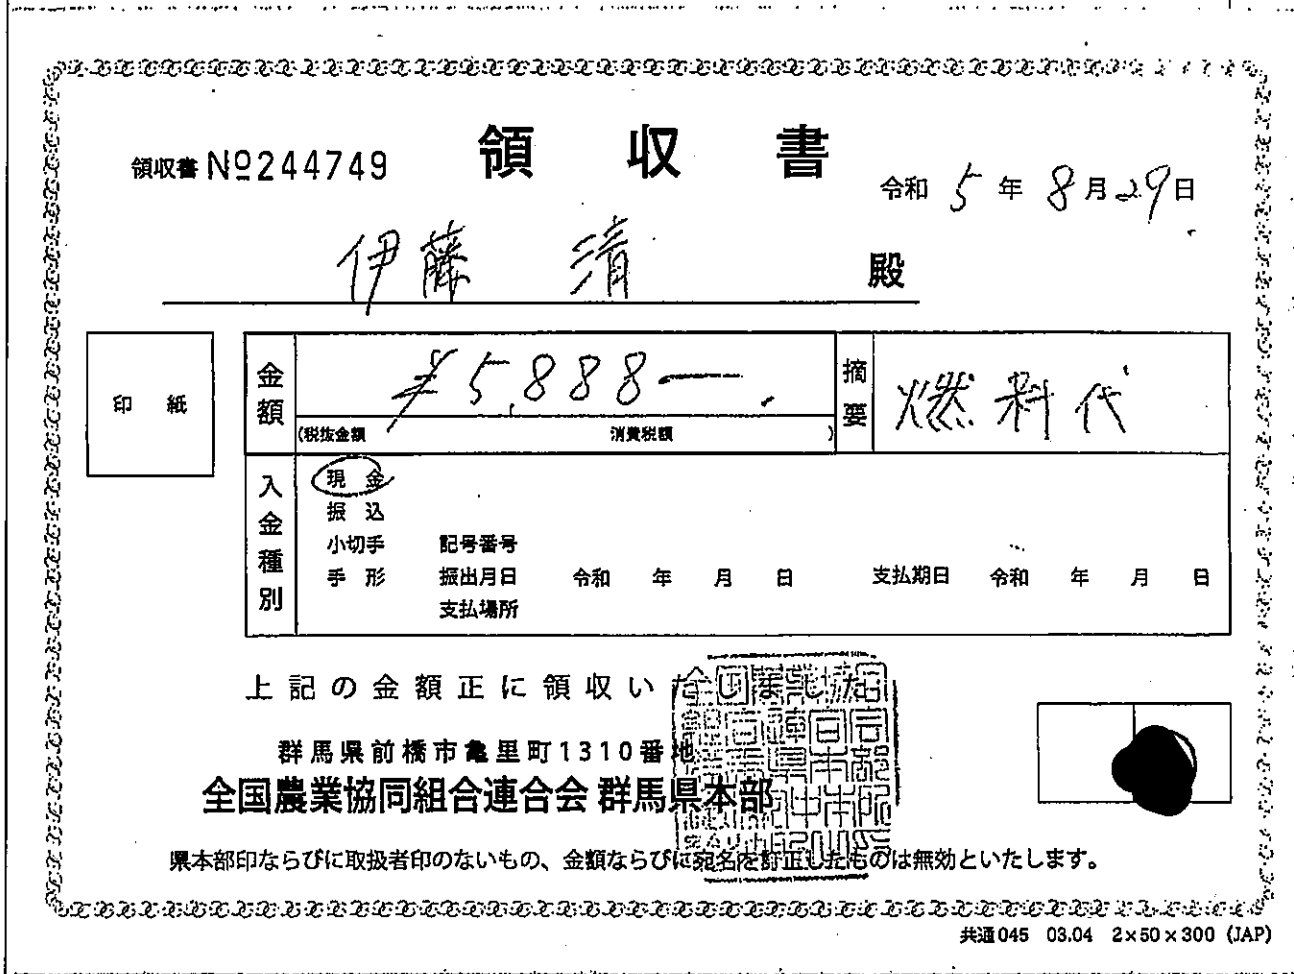 領収書
領収書 №244749
令和 5 年 8 月 29 日
伊藤 清 殿
印 紙
金額 ¥5,888ー.
(税抜金額 消費税額 )
摘要 燃料代
入金種別
現 金
振 込
小切手 記号番号
手 形 振出月日 令和 年 月 日 支払期日 令和 年 月 日
支払場所
上記の金額正に領収いたしました
群馬県前橋市亀里町1310番地
全国農業協同組合連合会 群馬県本部
県本部印ならびに取扱者印のないもの、金額ならびに宛名を訂正したものは無効といたします。
共通045 03.04 2×50×300 (JAP)